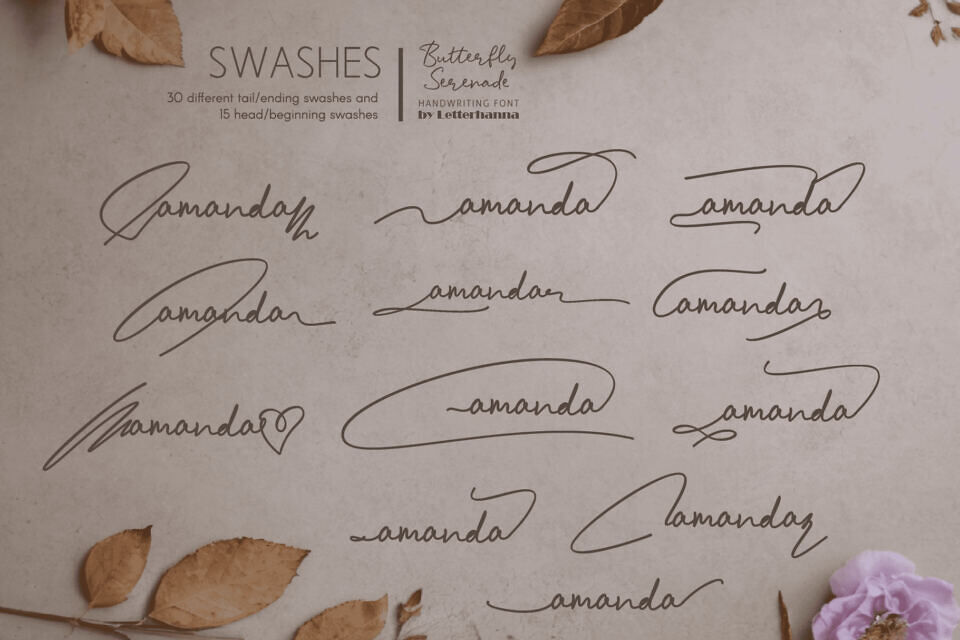 SWASHES
30 different tail/ending swashes and
15 head/beginning swashes
Butterfly
Serenade
HANDWRITING FONT
by Letterhanna
amanda amanda amanda
amanda amanda amanda
amanda amanda amanda
amanda amanda
amanda